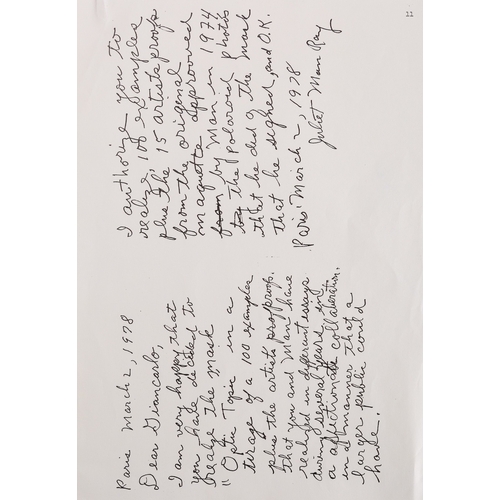 Paris March 2, 1978
Dear Giancarlo,
I am very happy that
you have decided to
realize the mask
"Optic Topic" in a
tirage of a 100 examples
plus the artists proof
that you and Man have
realized in different essays
during several years in
a affectionate collaboration.
in a manner that a
larger public could
have.
I authorize you to
realize 100 examples
plus the 15 artists proofs
from the original
maquette approved
from by Man in 1974
the Polaroid photos
that he did of the mask
that he signed, and O.K.
Paris March 2, 1978
Juliet Man Ray